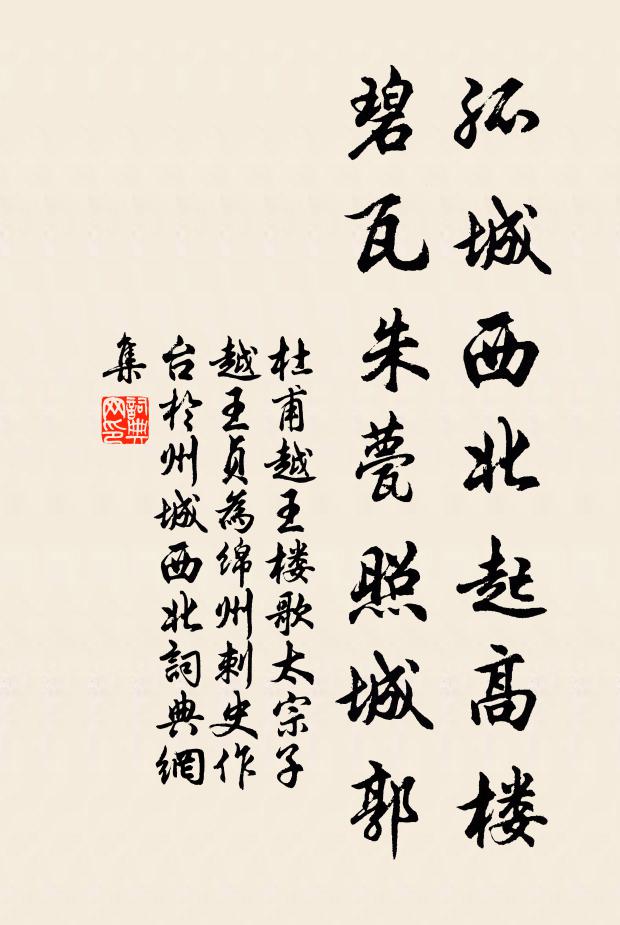 孤城西北起高楼
碧瓦朱甍照城郭
杜甫越王楼歌太宗子
越王贞為绵州刺史作
台於州城西北詞典網
集
詞典
网印